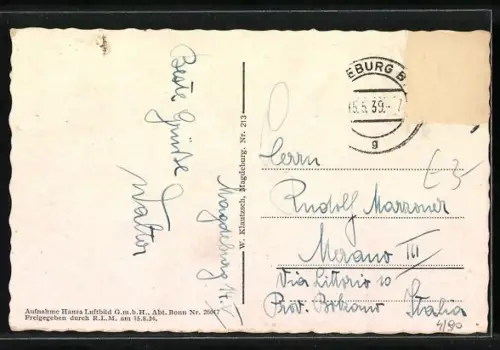 Beste Grüße
Walter
Magdeburg, 14. V
W. Klautzsch, Magdeburg. Nr. 213
Aufnahme Hansa Luftbild G.m.b.H., Abt. Bonn Nr. 26617
Freigegeben durch R.L.M. am 15.8.34.
EBURG B
15.5.39.-
g
Herrn
Rudolf Marzoner
Merano III
Via Littorio 10
Prov. Bolzano Italia
£ 3-
4190